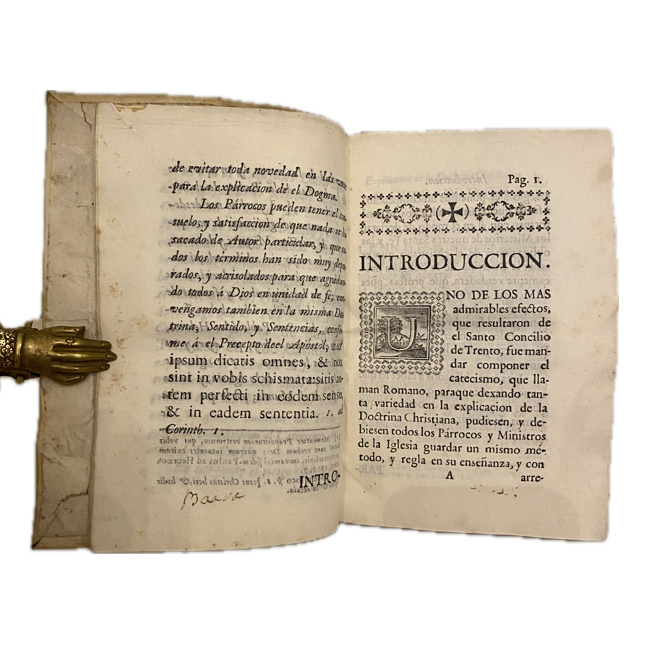 de evitar toda novedad en las
para la explicacion de el Dogma.
Los Párrocos pueden tener el
suelo, y satisfaccion de que nada
sacado de Autor particiclar, y que
dos los términos han sido muy
rados, y acrisolados para que
do todos á Dios en unidad de fé,
vengamos tambien en la misma
trina, Sentido, y Sentencias,
me á el Precepto deel Apóstol,
ipsum dicatis omnes, & non
sint in vobis schismata: sitis
tem perfecti in eodem sensu
& in eadem sententia. 1. ad
Corinth. 1.
INTRO-
Pag. 1.
INTRODUCCION.
UNO DE LOS MAS
admirables efectos,
que resultaron de
el Santo Concilio
de Trento, fue man-
dar componer el
catecismo, que lla-
man Romano, paraque dexando tan-
ta variedad en la explicacion de la
Doctrina Christiana, pudiesen, y de-
biesen todos los Párrocos y Ministros
de la Iglesia guardar un mismo mé-
todo, y regla en su enseñanza, y con
A arre-